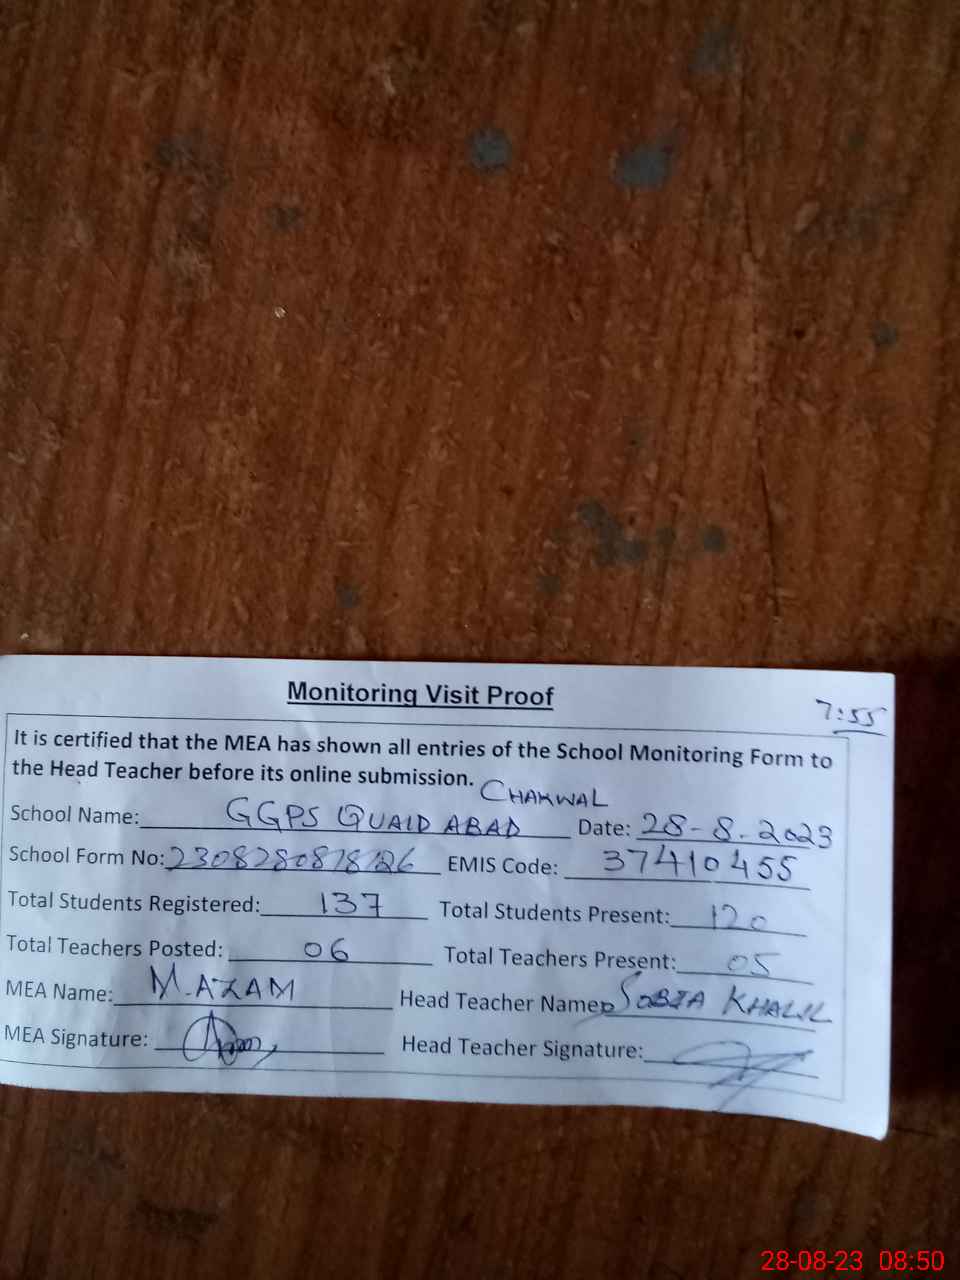 Monitoring Visit Proof
7:55
It is certified that the MEA has shown all entries of the School Monitoring Form to
the Head Teacher before its online submission.
CHAKWAL
School Name: GGPS QUAID ABAD Date: 28-8-2023
School Form No: EMIS Code: 37410455
Total Students Registered: 137 Total Students Present: 120
Total Teachers Posted: 06 Total Teachers Present: 05
MEA Name: M. AZAM Head Teacher Name: SOBIA KHALIL
MEA Signature: Head Teacher Signature:
28-08-23 08:50